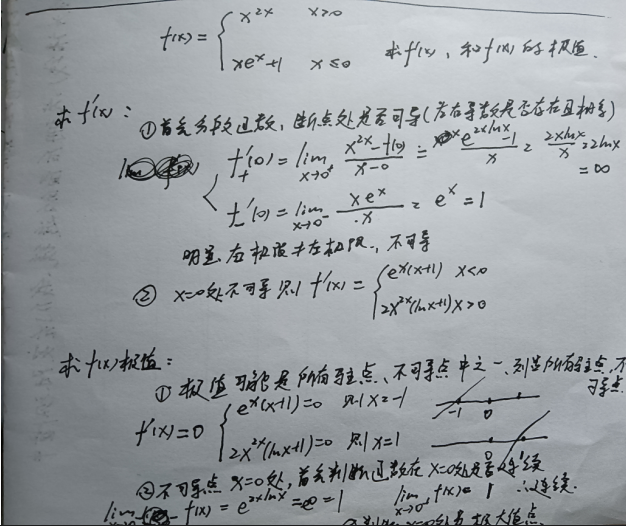 f(x) = { x^{2x} x>0
xe^x+1 x≤0 求f'(x), 和f(x)的极值.
求f'(x): ①首先分段函数, 断点处是否可导(左右导数是否存在且相等)
f'₊(0) = lim_{x→0⁺} \frac{x^{2x}-f(0)}{x-0} = \frac{e^{2xlnx}-1}{x} = \frac{2xlnx}{x} = 2lnx
= ∞
f'₋(0) = lim_{x→0⁻} \frac{xe^x}{x} = e^x = 1
明显 左极限≠右极限, 不可导
② x=0处不可导 则 f'(x) = { e^x(x+1) x<0
2x^{2x}(lnx+1) x>0
求f(x)极值:
① 极值可能是所有驻点、不可导点中之一, 列出所有驻点, 不可导点
f'(x)=0 { e^x(x+1)=0 则 x=-1 -1 0
2x^{2x}(lnx+1)=0 则 x=1 0
②不可导点 x=0处, 首先判断函数在x=0处是否连续
f(x) = e^{2xlnx} = = 1 lim_{x→0⁻} f(x) = 1 ∴连续.